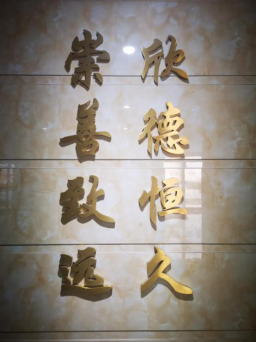 欣德恒久
崇善致远